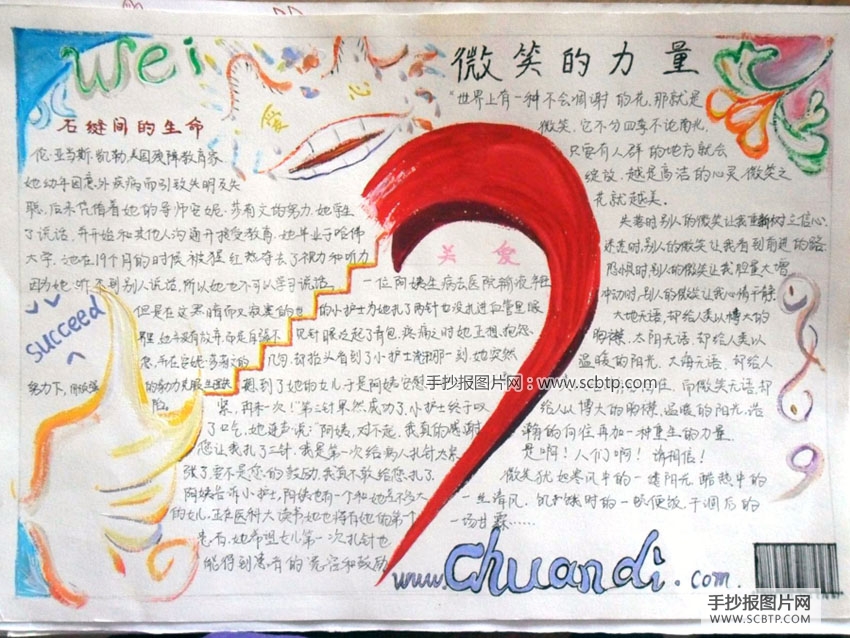 wei
爱心
微笑的力量
石缝间的生命
伦·亚当斯·凯勒,美国残障教育家
她幼年因意外疾病而引致失明及失
聪,后来凭借着她的导师安妮·莎利文的努力,她学生
了说话,并开始和其他人沟通并接受教育,她毕业于哈佛
大学,她在19个月的时候被猩红热夺去了视力和听力
因为她听不到别人说话,所以她也不可以学习说话
但是在这黑暗而又寂寞的世
succeed
努力下,用顽强
的努力克服
险。
关爱
一位阿姨生病去医院输液年轻
的小护士为她扎了两针也没扎进血管里眼
见针眼泛起了青包,疼痛之时她正想抱怨
几句,却抬头看到了小护士
那一刻她突然
想到了她的女儿于是阿姨安慰
紧,再来一次!"第三针果然成功了,小护士终于叹
了口气,她连声说:"阿姨,对不起,我真的感谢
您让我扎了三针,我是第一次给病人扎针太紧
张了要不是您的鼓励,我真不敢给您扎了。
阿姨告诉小护士,阿姨也有一个和她差不多大
的女儿,正在医科大读书她也将有她的第一个
患者,她希望女儿第一次扎针也
能得到患者的宽容和鼓励
"世界上有一种不会凋谢的花,那就是
微笑。它不分四季不论南北,
只要有人群的地方就会
绽放。越是高洁的心灵,微笑之
花就越美。
失落时,别人的微笑让我重新树立信心。
迷茫时,别人的微笑让我看到前进的路
恐惧时,别人的微笑让我胆量大增
冲动时,别人的微笑让我心情平静。
大地无语,却给人类以博大的
胸襟,太阳无语,却给人类以
温暖的阳光,大海无语,却给人
而微笑无语,却
给人以博大的胸襟,温暖的阳光,浩
瀚的向往,再加一种重生的力量。
是啊!人们啊!请相信!
微笑犹如寒风中的一缕阳光,酷热中的
一丝清风,饥
时的一
干涸后的
一场甘霖……
www.chuandi.com.
手抄报图片网:www.scbtp.com
手抄报图片网
WWW.SCBTP.COM